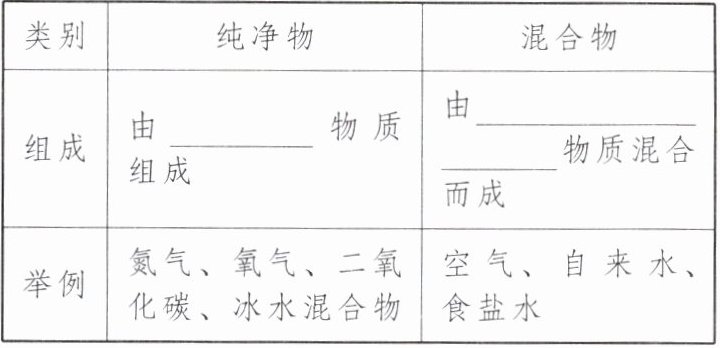 类别 纯净物 混合物
组成 由________物质
组成
由________________
________物质混合
而成
举例 氮气、氧气、二氧
化碳、冰水混合物
空气、自来水、
食盐水